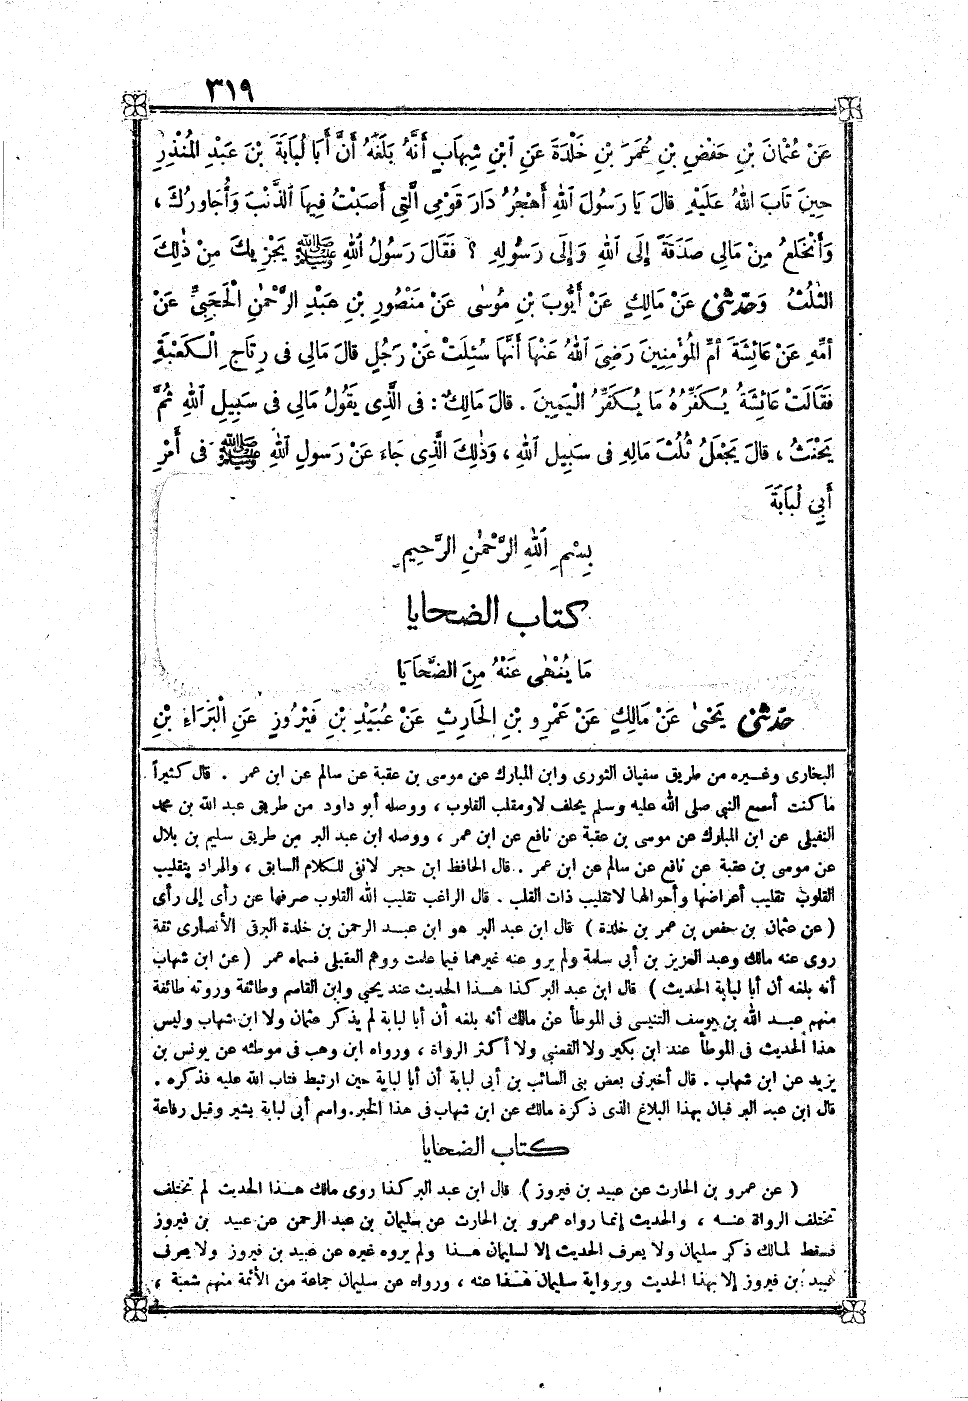 ٣١٩
عَنْ عُثْمَانَ بْنِ حَفْصِ بْنِ عُمَرَ بْنِ خَلْدَةَ عَنِ ٱبْنِ شِهَابٍ أَنَّهُ بَلَغَهُ أَنَّ أَبَا لُبَابَةَ بْنَ عَبْدِ الْمُنْذِرِ
حِينَ تَابَ اللهُ عَلَيْهِ قَالَ يَا رَسُولَ اللهِ أَهْجُرُ دَارَ قَوْمِى الَّتِى أَصَبْتُ فِيهَا الذَّنْبَ وَأُجَاوِرُكَ ،
وَأَنْخَلِعُ مِنْ مَالِى صَدَقَةً إِلَى اللهِ وَإِلَى رَسُولِهِ ؟ فَقَالَ رَسُولُ اللهِ ﷺ يَجْزِيكَ مِنْ ذٰلِكَ
الثُّلُثُ وَحَدَّثَنِى عَنْ مَالِكٍ عَنْ أَيُّوبَ بْنِ مُوسَى عَنْ مَنْصُورِ بْنِ عَبْدِ الرَّحْمٰنِ الْحَجَبِىِّ عَنْ
أُمِّهِ عَنْ عَائِشَةَ أُمِّ الْمُؤْمِنِينَ رَضِىَ اللهُ عَنْهَا أَنَّهَا سُئِلَتْ عَنْ رَجُلٍ قَالَ مَالِى فِى رِتَاجِ الْكَعْبَةِ
فَقَالَتْ عَائِشَةُ يُكَفِّرُهُ مَا يُكَفِّرُ الْيَمِينَ . قَالَ مَالِكٌ : فِى الَّذِى يَقُولُ مَالِى فِى سَبِيلِ اللهِ ثُمَّ
يَحْنَثُ ، قَالَ يَجْعَلُ ثُلُثَ مَالِهِ فِى سَبِيلِ اللهِ ، وَذٰلِكَ الَّذِى جَاءَ عَنْ رَسُولِ اللهِ ﷺ فِى أَمْرِ
أَبِى لُبَابَةَ
بِسْمِ اللهِ الرَّحْمٰنِ الرَّحِيمِ
كتاب الضحايا
مَا يُنْهٰى عَنْهُ مِنَ الضَّحَايَا
حَدَّثَنِى يَحْيىٰ عَنْ مَالِكٍ عَنْ عَمْرِو بْنِ الْحَارِثِ عَنْ عُبَيْدِ بْنِ فَيْرُوزٍ عَنِ الْبَرَاءِ بْنِ
البخارى وغيره من طريق سفيان الثورى وابن المبارك عن موسى بن عقبة عن سالم عن ابن عمر . قال كثيراً
ما كنت أسمع النبي صلى الله عليه وسلم يحلف لاومقلب القلوب ، ووصله أبو داود من طريق عبد الله بن محمد
النفيلى عن ابن المبارك عن موسى بن عقبة عن نافع عن ابن عمر ، ووصله ابن عبد البر من طريق سليم بن بلال
عن موسى بن عقبة عن نافع عن سالم عن ابن عمر . قال الحافظ ابن حجر لانفى للكلام السابق ، والمراد بتقليب
القلوب تقليب أعراضها وأحوالها لاتقليب ذات القلب . قال الراغب تقليب الله القلوب صرفها عن رأى إلى رأى
( عن عثمان بن حفص بن عمر بن خلدة ) قال ابن عبد البر هو ابن عبد الرحمن بن خلدة البرقى الأنصارى ثقة
روى عنه مالك وعبد العزيز بن أبى سلمة ولم يرو عنه غيرهما فيما علمت ووهم العقيلى فسماه عمر ( عن ابن شهاب
أنه بلغه أن أبا لبابة الحديث ) قال ابن عبد البر كذا هذا الحديث عند يحيى وابن القاسم وطائفة وروته طائفة
منهم عبد الله بن يوسف التنيسى فى الموطأ عن مالك أنه بلغه أن أبا لبابة لم يذكر عثمان ولا ابن شهاب وليس
هذا الحديث فى الموطأ عند ابن بكير ولا القعنبى ولا أكثر الرواة ، ورواه ابن وهب فى موطئه عن يونس بن
يزيد عن ابن شهاب . قال أخبرنى بعض بنى السائب بن أبى لبابة أن أبا لبابة حين ارتبط فتاب الله عليه فذكره .
قال ابن عبد البر فبان بهذا البلاغ الذى ذكرة مالك عن ابن شهاب فى هذا الخبر.واسم أبى لبابة بشير وقيل رفاعة
كتاب الضحايا
( عن عمرو بن الحارث عن عبيد بن فيروز ) قال ابن عبد البر كذا روى مالك هذا الحديث لم تختلف
تختلف الرواة عنه ، والحديث إنما رواه عمرو بن الحارث عن سليمان بن عبد الرحمن عن عبيد بن فيروز
فسقط لمالك ذكر سليمان ولا يعرف الحديث إلا لسليمان هذا ولم يروه غيره عن عبيد بن فيروز ولا يعرف
عبيد بن فيروز إلا بهذا الحديث وبرواية سليمان هذا عنه ، ورواه عن سليمان جماعة من الأئمة منهم شعبة ،